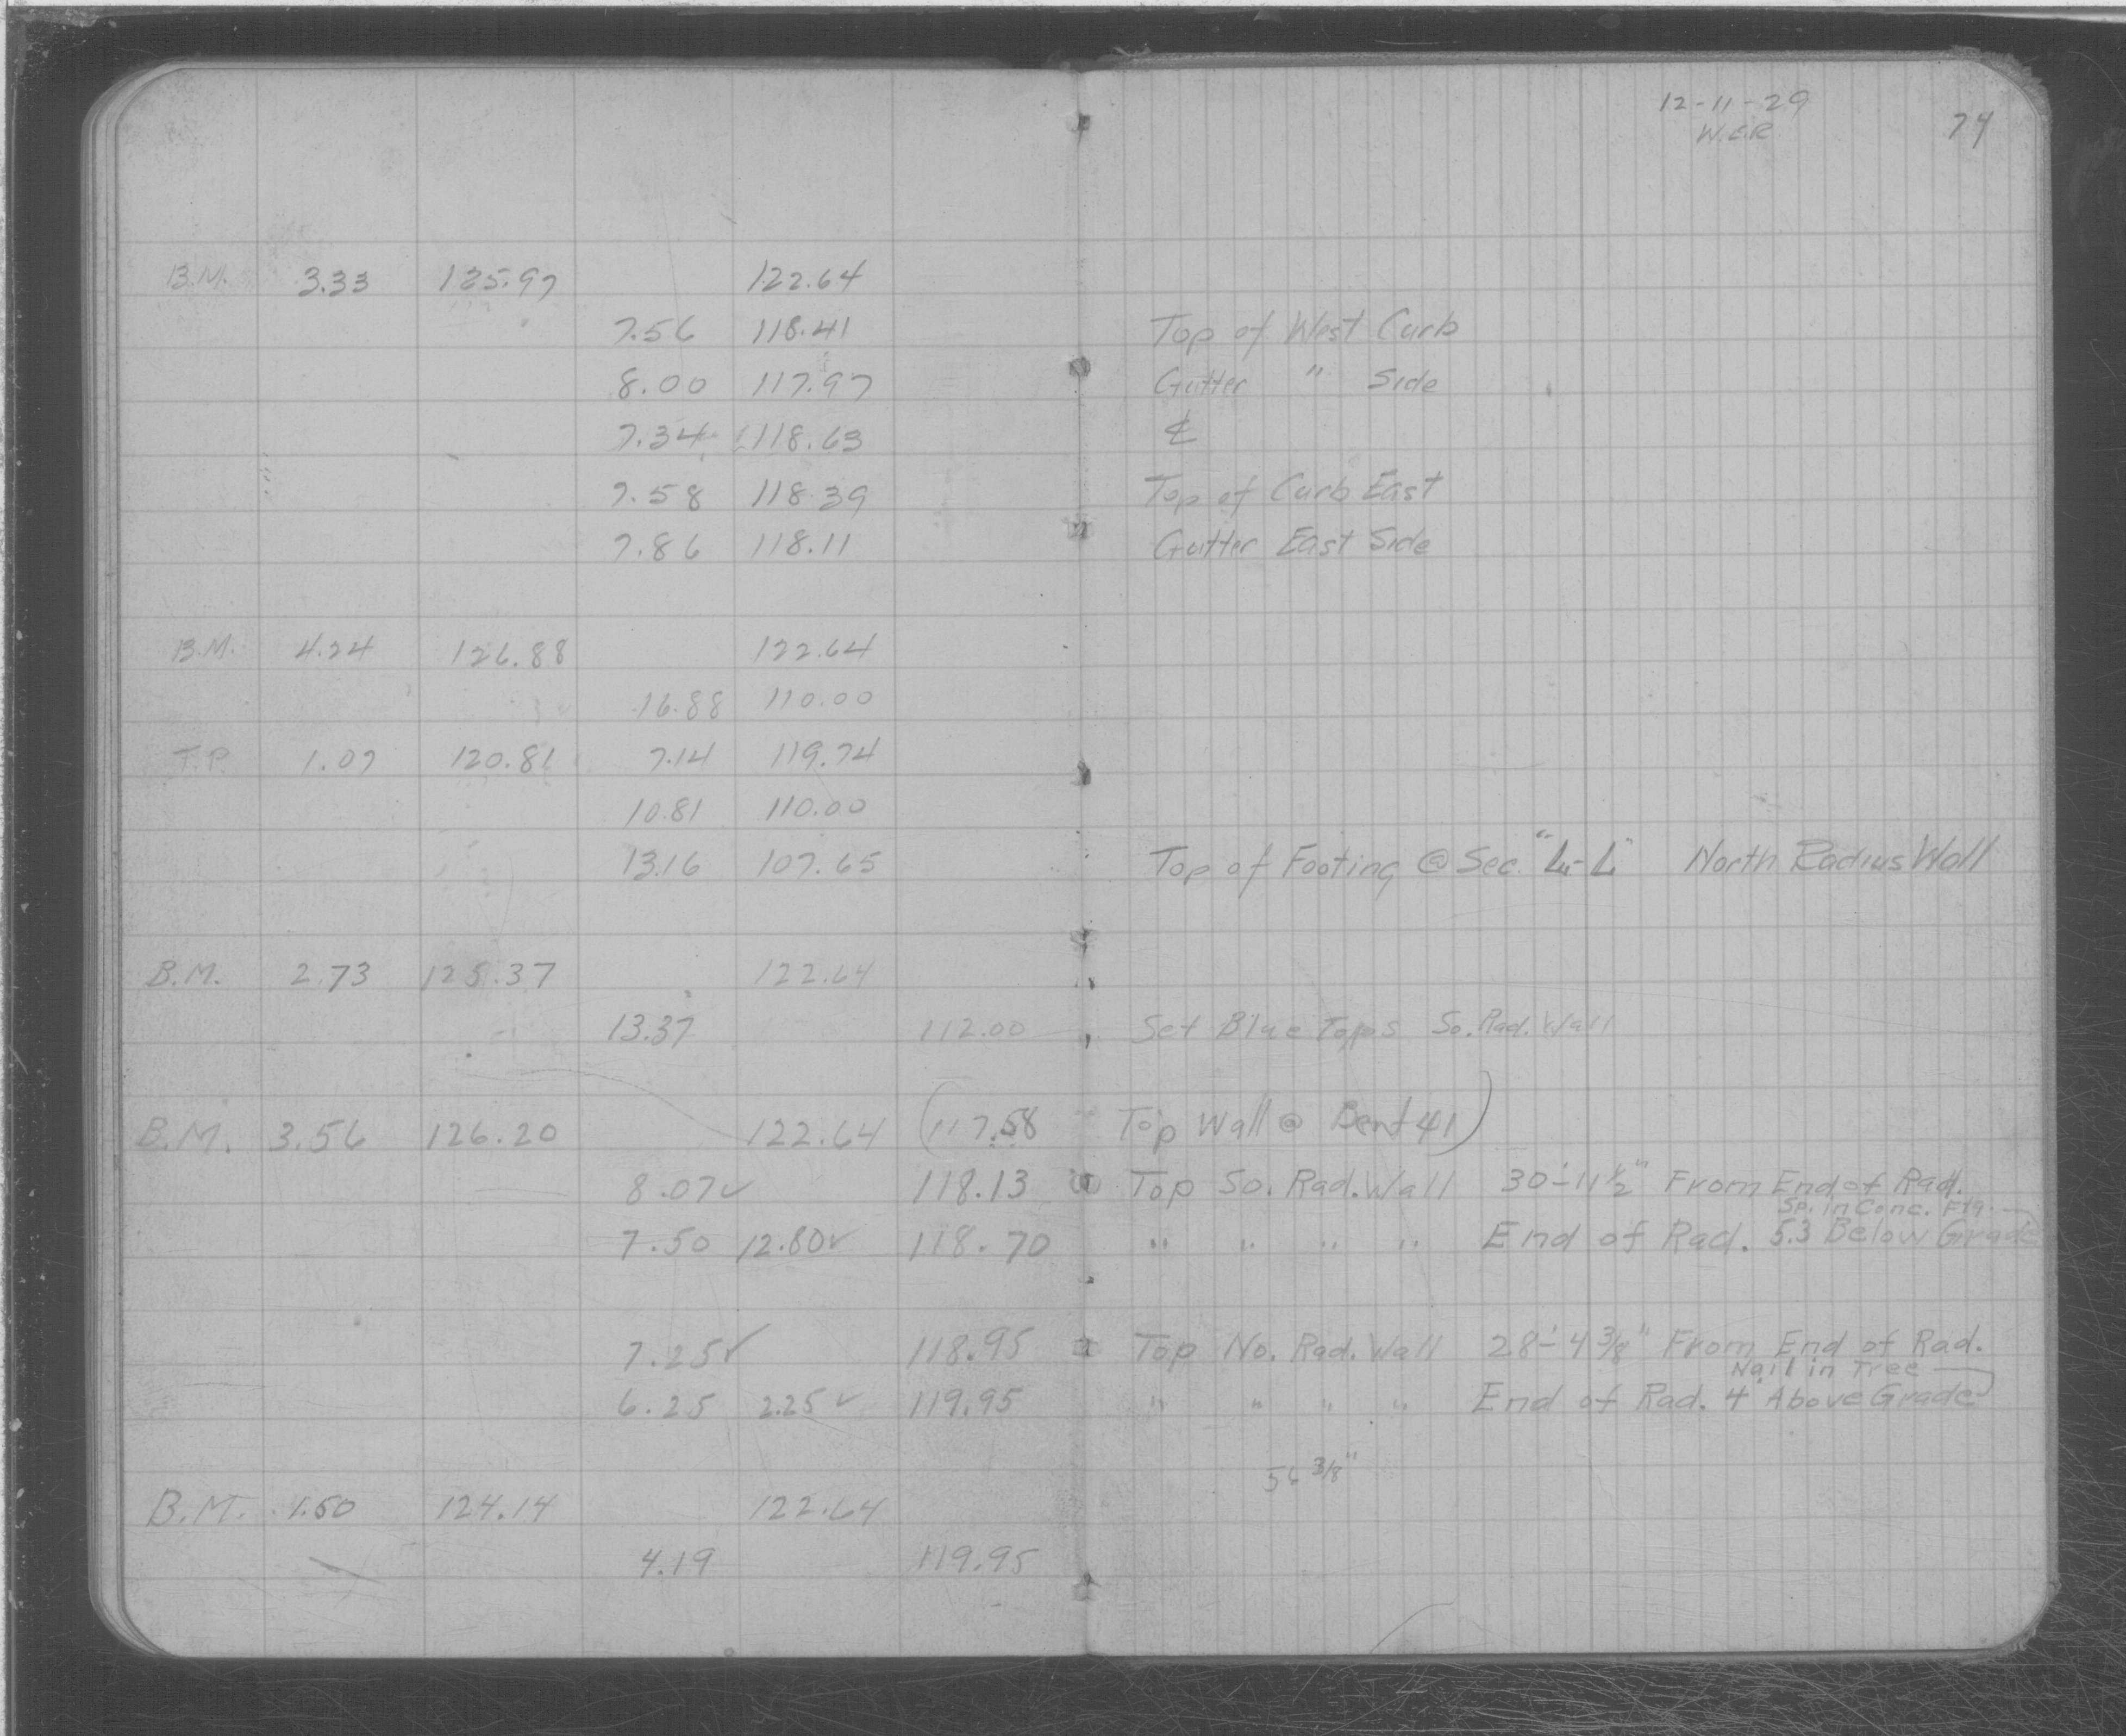 12-11-29
W.E.R 74
B.M. 3.33 125.97 122.64
7.56 118.41 Top of West Curb
8.00 117.97 Gutter " Side
7.34 118.63 ℄
7.58 118.39 Top of Curb East
7.86 118.11 Gutter East Side
B.M. 4.24 126.88 122.64
16.88 110.00
T.P. 1.07 120.81 7.14 119.74
10.81 110.00
13.16 107.65 Top of Footing @ Sec. "L-L" North Radius Wall
B.M. 2.73 125.37 122.64
13.37 112.00 Set Blue Tops So. Rad. Wall
B.M. 3.56 126.20 122.64 (117.58 Top Wall @ Bent 41)
8.07✓ 118.13 Top So. Rad. Wall 30'-11½" From End of Rad.
Sp. in Conc. Ftg.
7.50 12.80✓ 118.70 " " " " End of Rad. 5.3 Below Grade
7.25✓ 118.95 Top No. Rad. Wall 28'-4 3/8" From End of Rad.
Nail in Tree
6.25 2.25✓ 119.95 " " " " End of Rad. 4' Above Grade
56 3/8"
B.M. 1.50 124.14 122.64
4.19 119.95